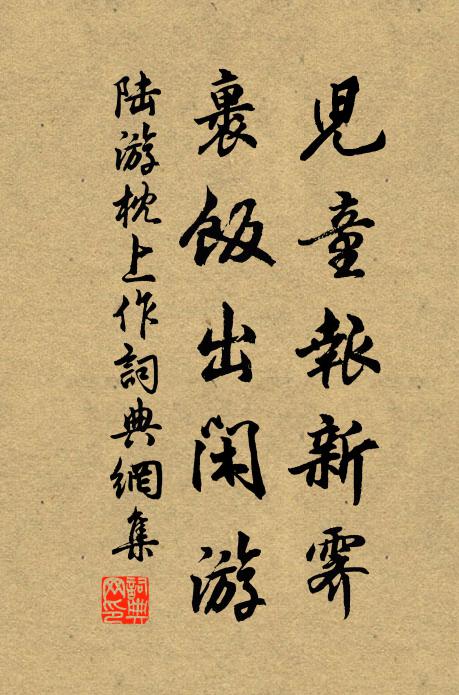 児童報新霽
裹飯出閑游
陸游枕上作詞典網集
詞典网印